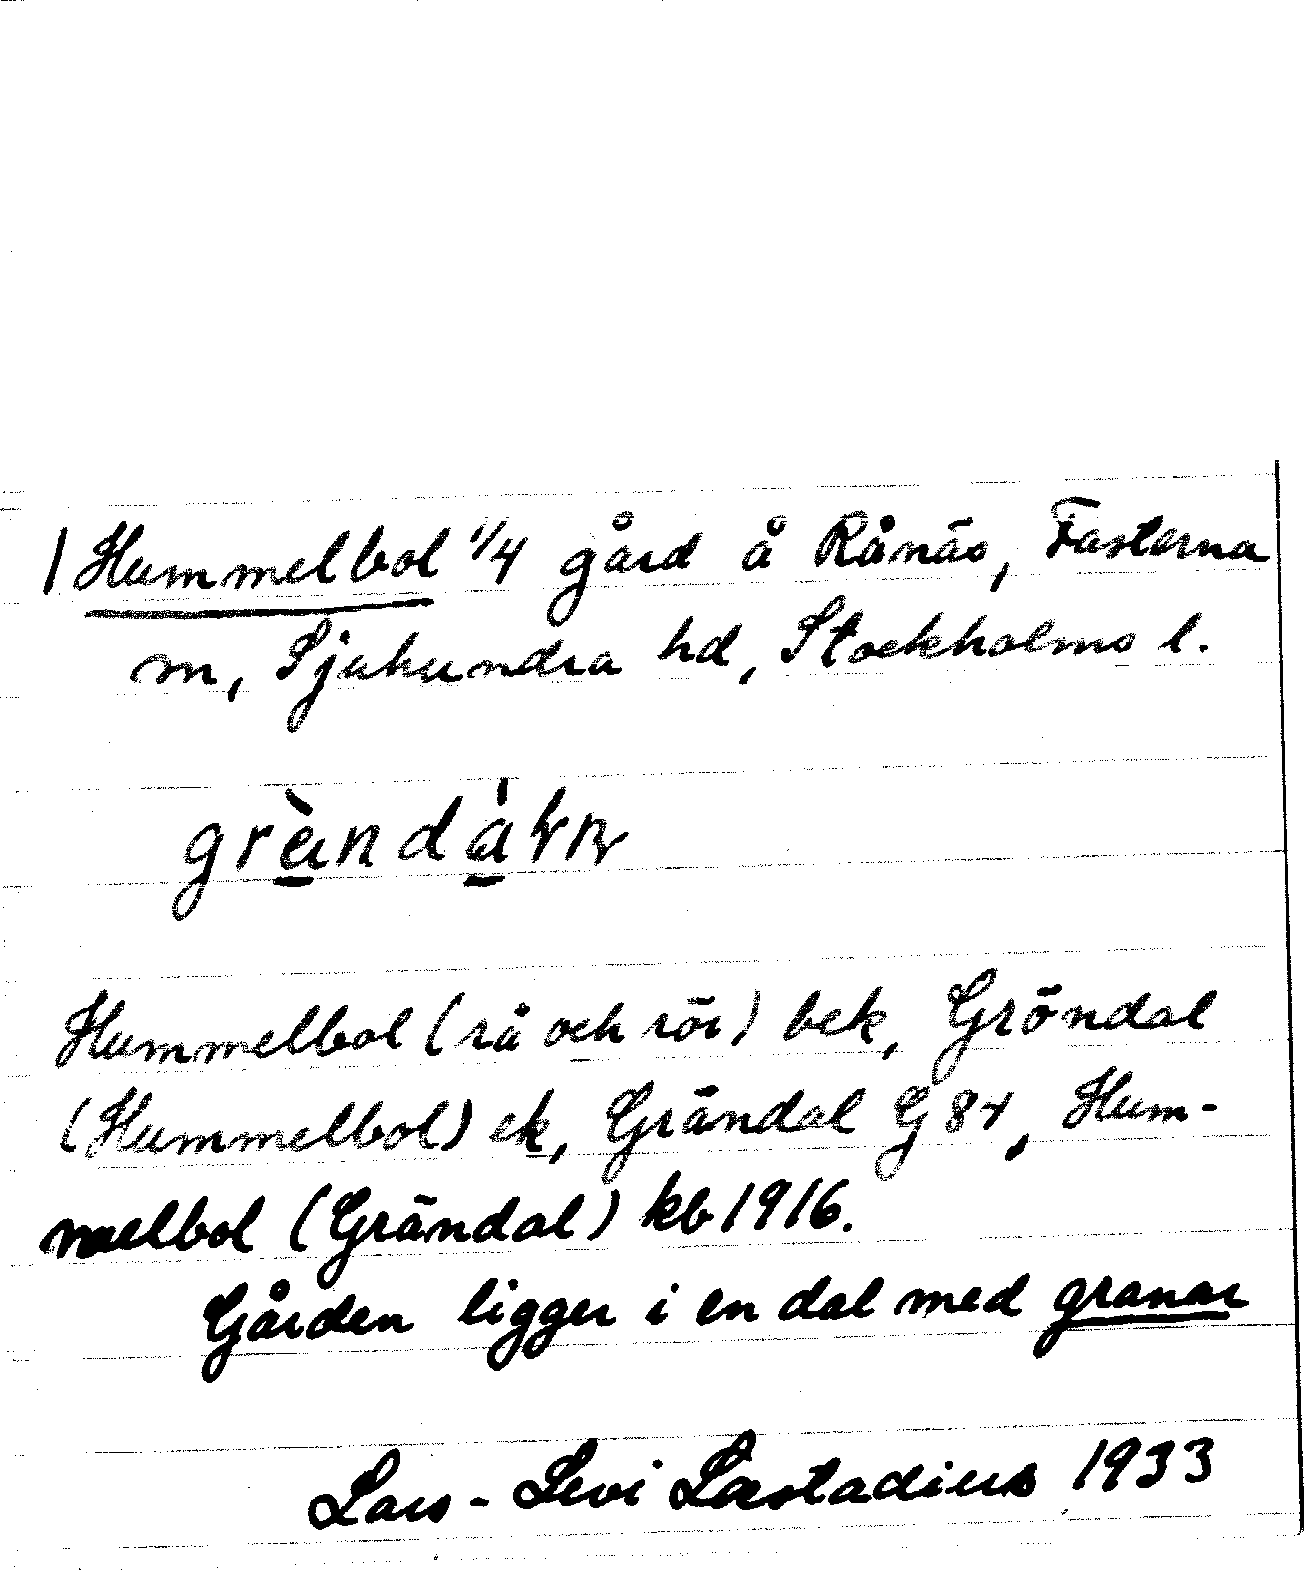 / Hummelbol 1/4 gård å Rånäs, Fasterna
sn, Sjuhundra hd, Stockholms l.
Hummelbol (rå och rör) bek, Gröndal
(Hummelbol) ek, Grändal G 84, Hum-
melbol (Grändal) kb 1916.
Gården ligger i en dal med granar
Lars-Levi Læstadius 1933